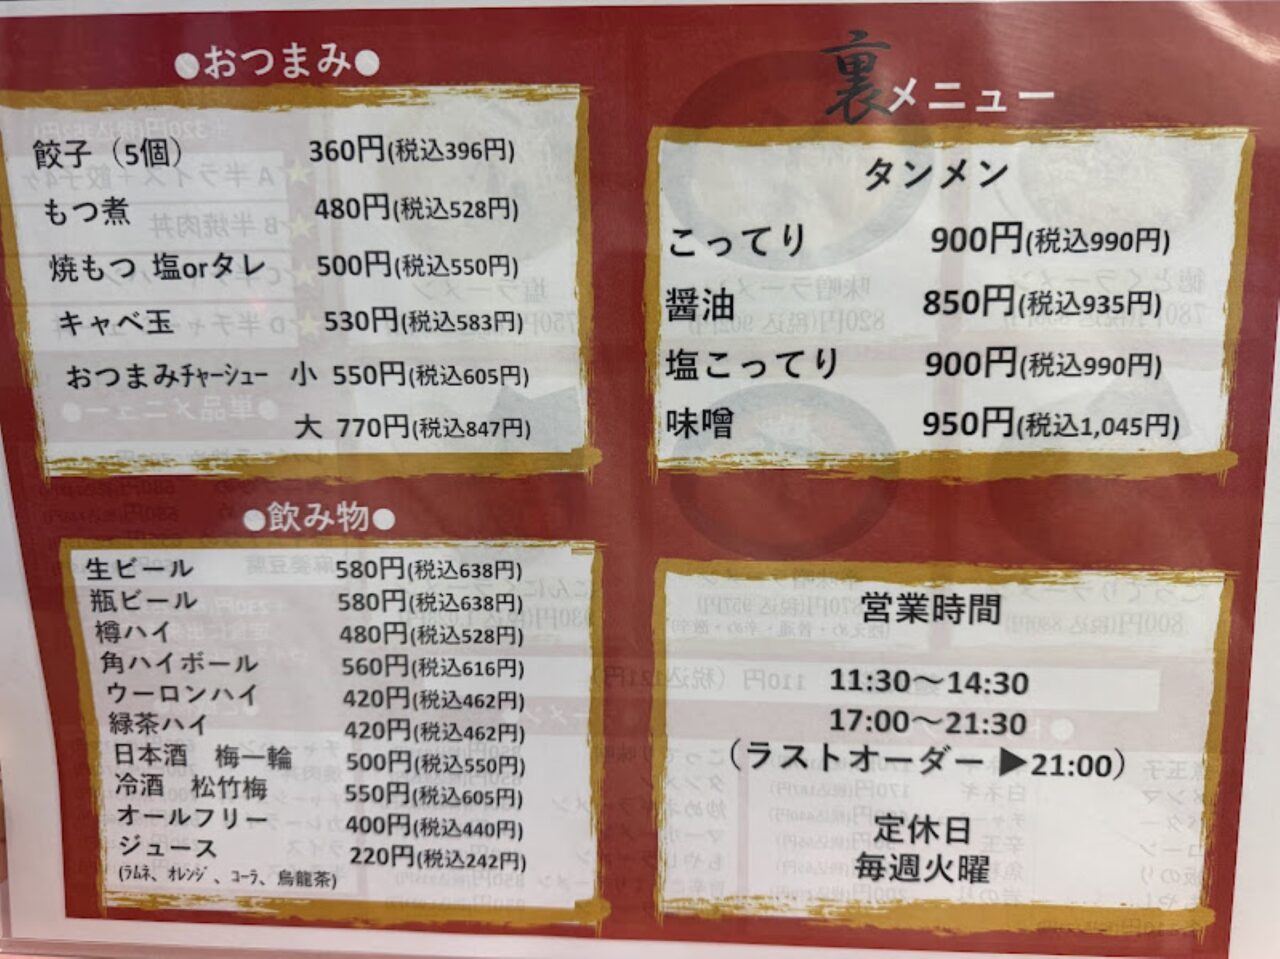 ●おつまみ●
餃子（5個） 360円(税込396円)
もつ煮 480円(税込528円)
焼もつ 塩orタレ 500円(税込550円)
キャベ玉 530円(税込583円)
おつまみﾁｬｰｼｭｰ 小 550円(税込605円)
大 770円(税込847円)
●飲み物●
生ビール 580円(税込638円)
瓶ビール 580円(税込638円)
樽ハイ 480円(税込528円)
角ハイボール 560円(税込616円)
ウーロンハイ 420円(税込462円)
緑茶ハイ 420円(税込462円)
日本酒 梅一輪 500円(税込550円)
冷酒 松竹梅 550円(税込605円)
オールフリー 400円(税込440円)
ジュース 220円(税込242円)
(ﾗﾑﾈ、ｵﾚﾝｼﾞ、ｺｰﾗ、烏龍茶)
裏メニュー
タンメン
こってり 900円(税込990円)
醤油 850円(税込935円)
塩こってり 900円(税込990円)
味噌 950円(税込1,045円)
営業時間
11:30～14:30
17:00～21:30
（ラストオーダー ▶21:00）
定休日
毎週火曜